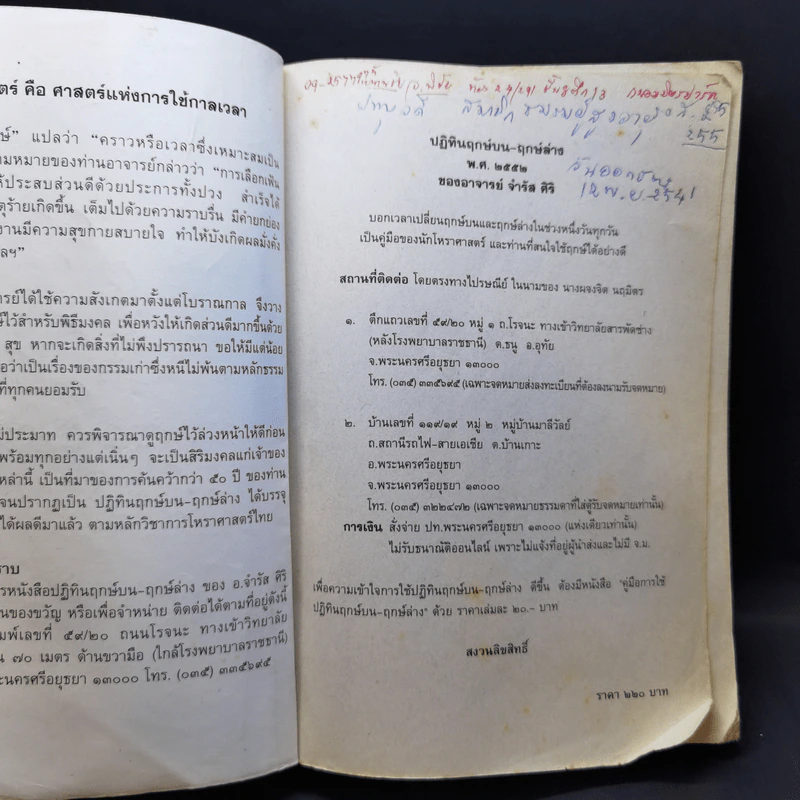 ตร์ คือ ศาสตร์แห่งการใช้กาลเวลา
ษ์" แปลว่า "คราวหรือเวลาซึ่งเหมาะสมเป็น
ามหมายของท่านอาจารย์กล่าวว่า "การเลือกเฟ้น
ห้ประสบส่วนดีด้วยประการทั้งปวง สำเร็จได้
ตุร้ายเกิดขึ้น เต็มไปด้วยความราบรื่น มีค่ายกย่อง
งานมีความสุขกายสบายใจ ทำให้บังเกิดผลมั่งคั่ง
ลฯ"
รย์ได้ใช้ความสังเกตมาตั้งแต่โบราณกาล จึงวาง
์ไว้สำหรับพิธีมงคล เพื่อหวังให้เกิดส่วนดีมากขึ้นด้วย
สุข หากจะเกิดสิ่งที่ไม่พึงปรารถนา ขอให้มีแต่น้อย
อว่าเป็นเรื่องของกรรมเก่าซึ่งหนีไม่พ้นตามหลักธรรม
ที่ทุกคนยอมรับ
ม่ประมาท ควรพิจารณาดูฤกษ์ไว้ล่วงหน้าให้ดีก่อน
พร้อมทุกอย่างแต่เนิ่นๆ จะเป็นสิริมงคลแก่เจ้าของ
เหล่านี้ เป็นที่มาของการค้นคว้ากว่า ๕๐ ปี ของท่าน
จนปรากฏเป็น ปฏิทินฤกษ์บน-ฤกษ์ล่าง ได้บรรจุ
ได้ผลดีมาแล้ว ตามหลักวิชาการโหราศาสตร์ไทย
ราบ
รหนังสือปฏิทินฤกษ์บน-ฤกษ์ล่าง ของ อ.จำรัส ศิริ
นของขวัญ หรือเพื่อจำหน่าย ติดต่อได้ตามที่อยู่ดังนี้
มพ์เลขที่ ๕๙/๒๐ ถนนโรจนะ ทางเข้าวิทยาลัย
น ๗๐ เมตร ด้านขวามือ (ใกล้โรงพยาบาลราชธานี)
ะนครศรีอยุธยา ๑๓๐๐๐ โทร. (๐๓๕) ๓๓๕๖๙๕
255
ปฏิทินฤกษ์บน-ฤกษ์ล่าง
พ.ศ. ๒๕๕๒
ของอาจารย์ จำรัส ศิริ
บอกเวลาเปลี่ยนฤกษ์บนและฤกษ์ล่างในช่วงหนึ่งวันทุกวัน
เป็นคู่มือของนักโหราศาสตร์ และท่านที่สนใจใช้ฤกษ์ได้อย่างดี
สถานที่ติดต่อ โดยตรงทางไปรษณีย์ ในนามของ นางผจงจิต นฤมิตร
๑. ตึกแถวเลขที่ ๕๙/๒๐ หมู่ ๑ ถ.โรจนะ ทางเข้าวิทยาลัยสารพัดช่าง
(หลังโรงพยาบาลราชธานี) ต.ธนู อ.อุทัย
จ.พระนครศรีอยุธยา ๑๓๐๐๐
โทร. (๐๓๕) ๓๓๕๖๙๕ (เฉพาะจดหมายส่งลงทะเบียนที่ต้องลงนามรับจดหมาย)
๒. บ้านเลขที่ ๑๑๙/๑๙ หมู่ ๒ หมู่บ้านมาลีวัลย์
ถ.สถานีรถไฟ-สายเอเซีย ต.บ้านเกาะ
อ.พระนครศรีอยุธยา
จ.พระนครศรีอยุธยา ๑๓๐๐๐
โทร. (๐๓๕) ๓๒๒๔๗๒ (เฉพาะจดหมายธรรมดาที่ใส่ตู้รับจดหมายเท่านั้น)
การเงิน สั่งจ่าย ปท.พระนครศรีอยุธยา ๑๓๐๐๐ (แห่งเดียวเท่านั้น)
ไม่รับธนาณัติออนไลน์ เพราะไม่แจ้งที่อยู่ผู้นำส่งและไม่มี จ.ม.
เพื่อความเข้าใจการใช้ปฏิทินฤกษ์บน-ฤกษ์ล่าง ดีขึ้น ต้องมีหนังสือ "คู่มือการใช้
ปฏิทินฤกษ์บน-ฤกษ์ล่าง" ด้วย ราคาเล่มละ ๒๐.- บาท
สงวนลิขสิทธิ์
ราคา ๒๒๐ บาท